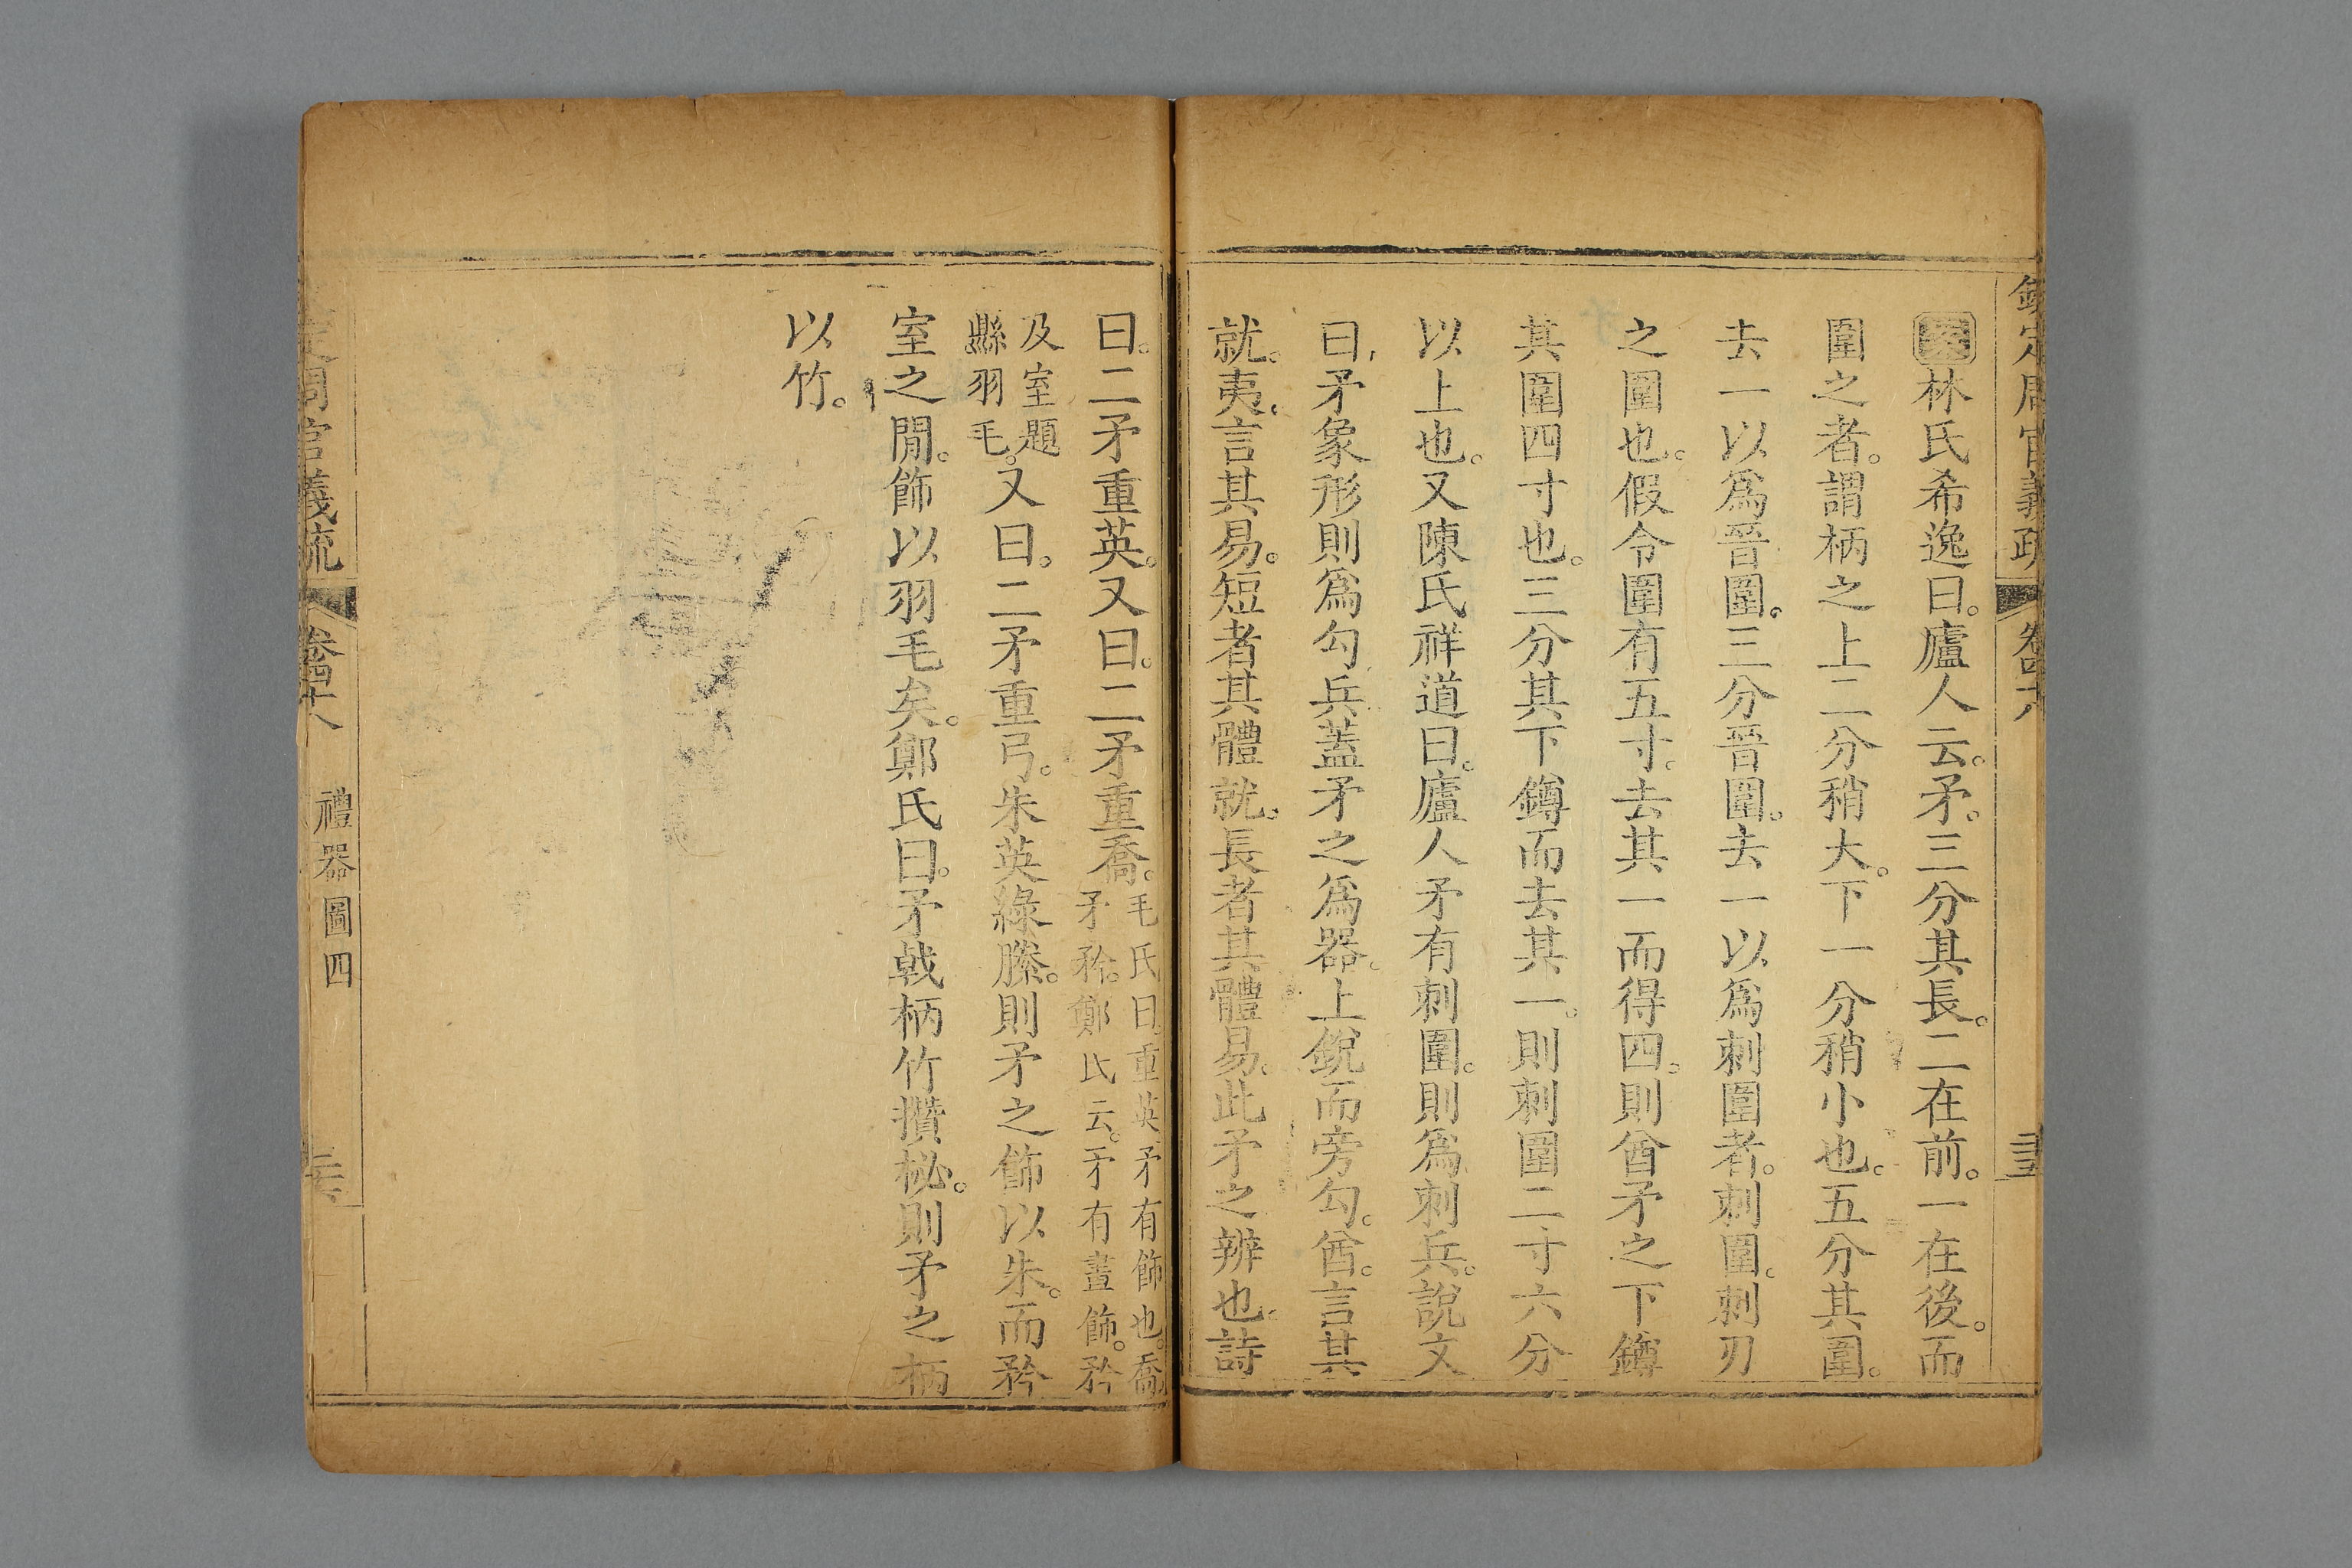 欽定周官義疏 卷四十八
案林氏希逸曰。廬人云。矛。三分其長。二在前。一在後。而
圍之者。謂柄之上二分稍大。下一分稍小也。五分其圍。
去一以爲晉圍。三分晉圍。去一以爲刺圍者。刺圍。刺刃
之圍也。假令圍有五寸。去其一而得四。則酋矛之下鐏
其圍四寸也。三分其下鐏而去其一。則刺圍二寸六分
以上也。又陳氏祥道曰。廬人矛有刺圍。則爲刺兵。說文
曰。矛象形則爲勾兵蓋矛之爲器。上銳而旁勾。酋。言其
就。夷。言其易。短者其體就。長者其體易。此矛之辨也。詩
曰。二矛重英。又曰。二矛重喬。毛氏曰。重英矛有飾也。喬。
矛矜。鄭氏云。矛有畫飾。矜
及室題
縣羽毛。又曰。二矛重弓。朱英綠縢。則矛之飾以朱。而矜
室之閒。飾以羽毛矣。鄭氏曰。矛戟柄竹攢柲。則矛之柄
以竹。
定周官義疏 卷四十八 禮器圖四